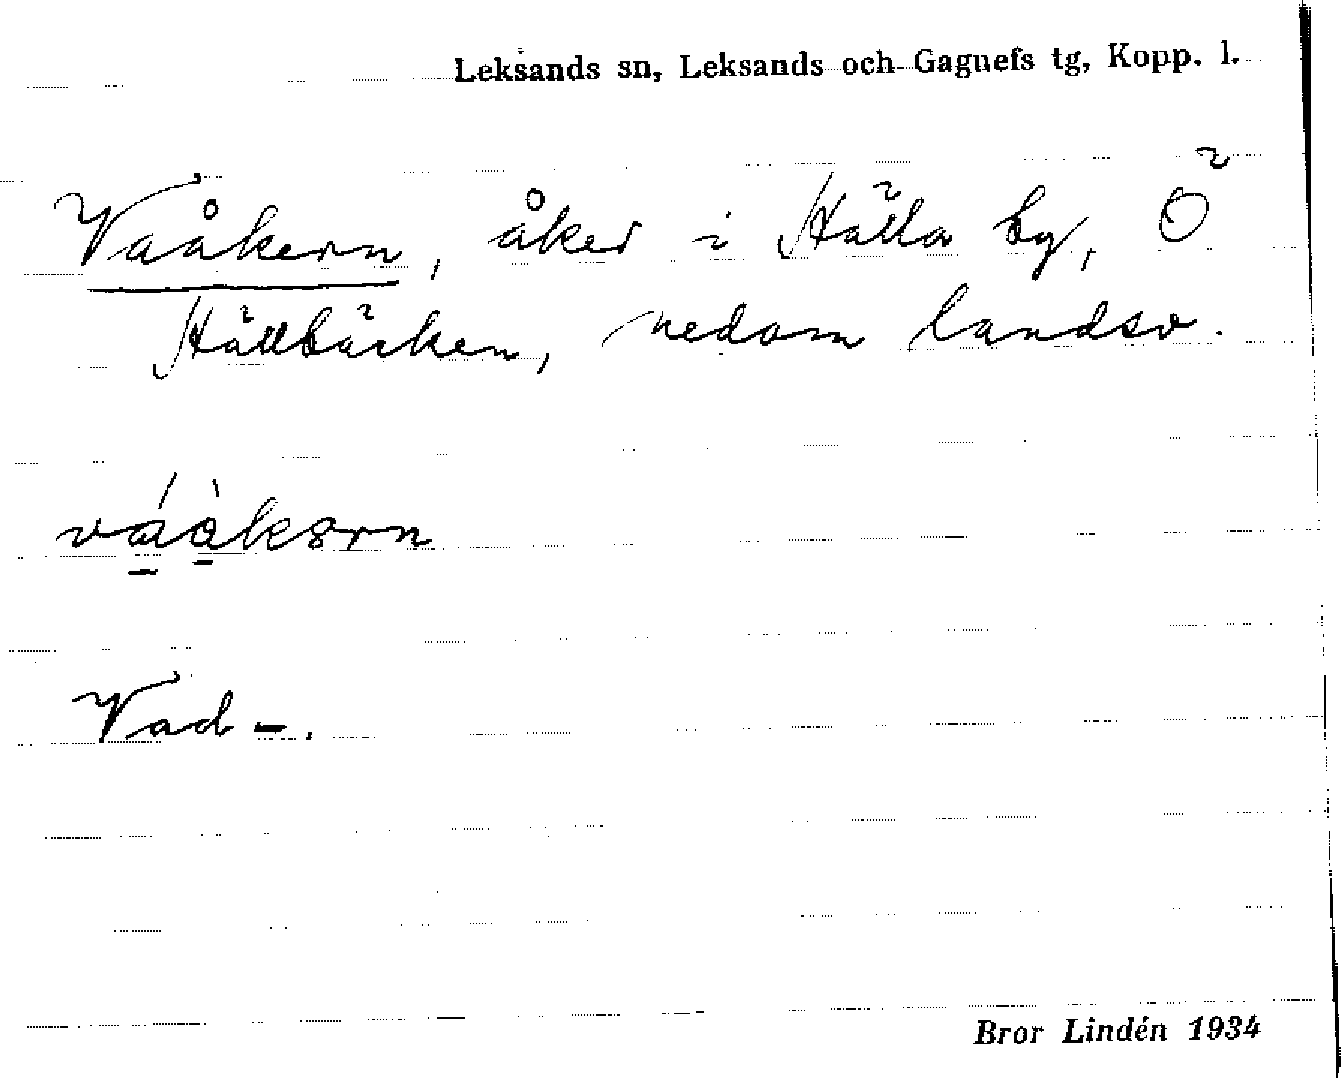 Leksands sn, Leksands och Gagnefs tg, Kopp. l.
Vaåkern, åker i Hälla by, Ö
Hällbäcken, nedom landsv.
Vad-.
Bror Lindén 1934